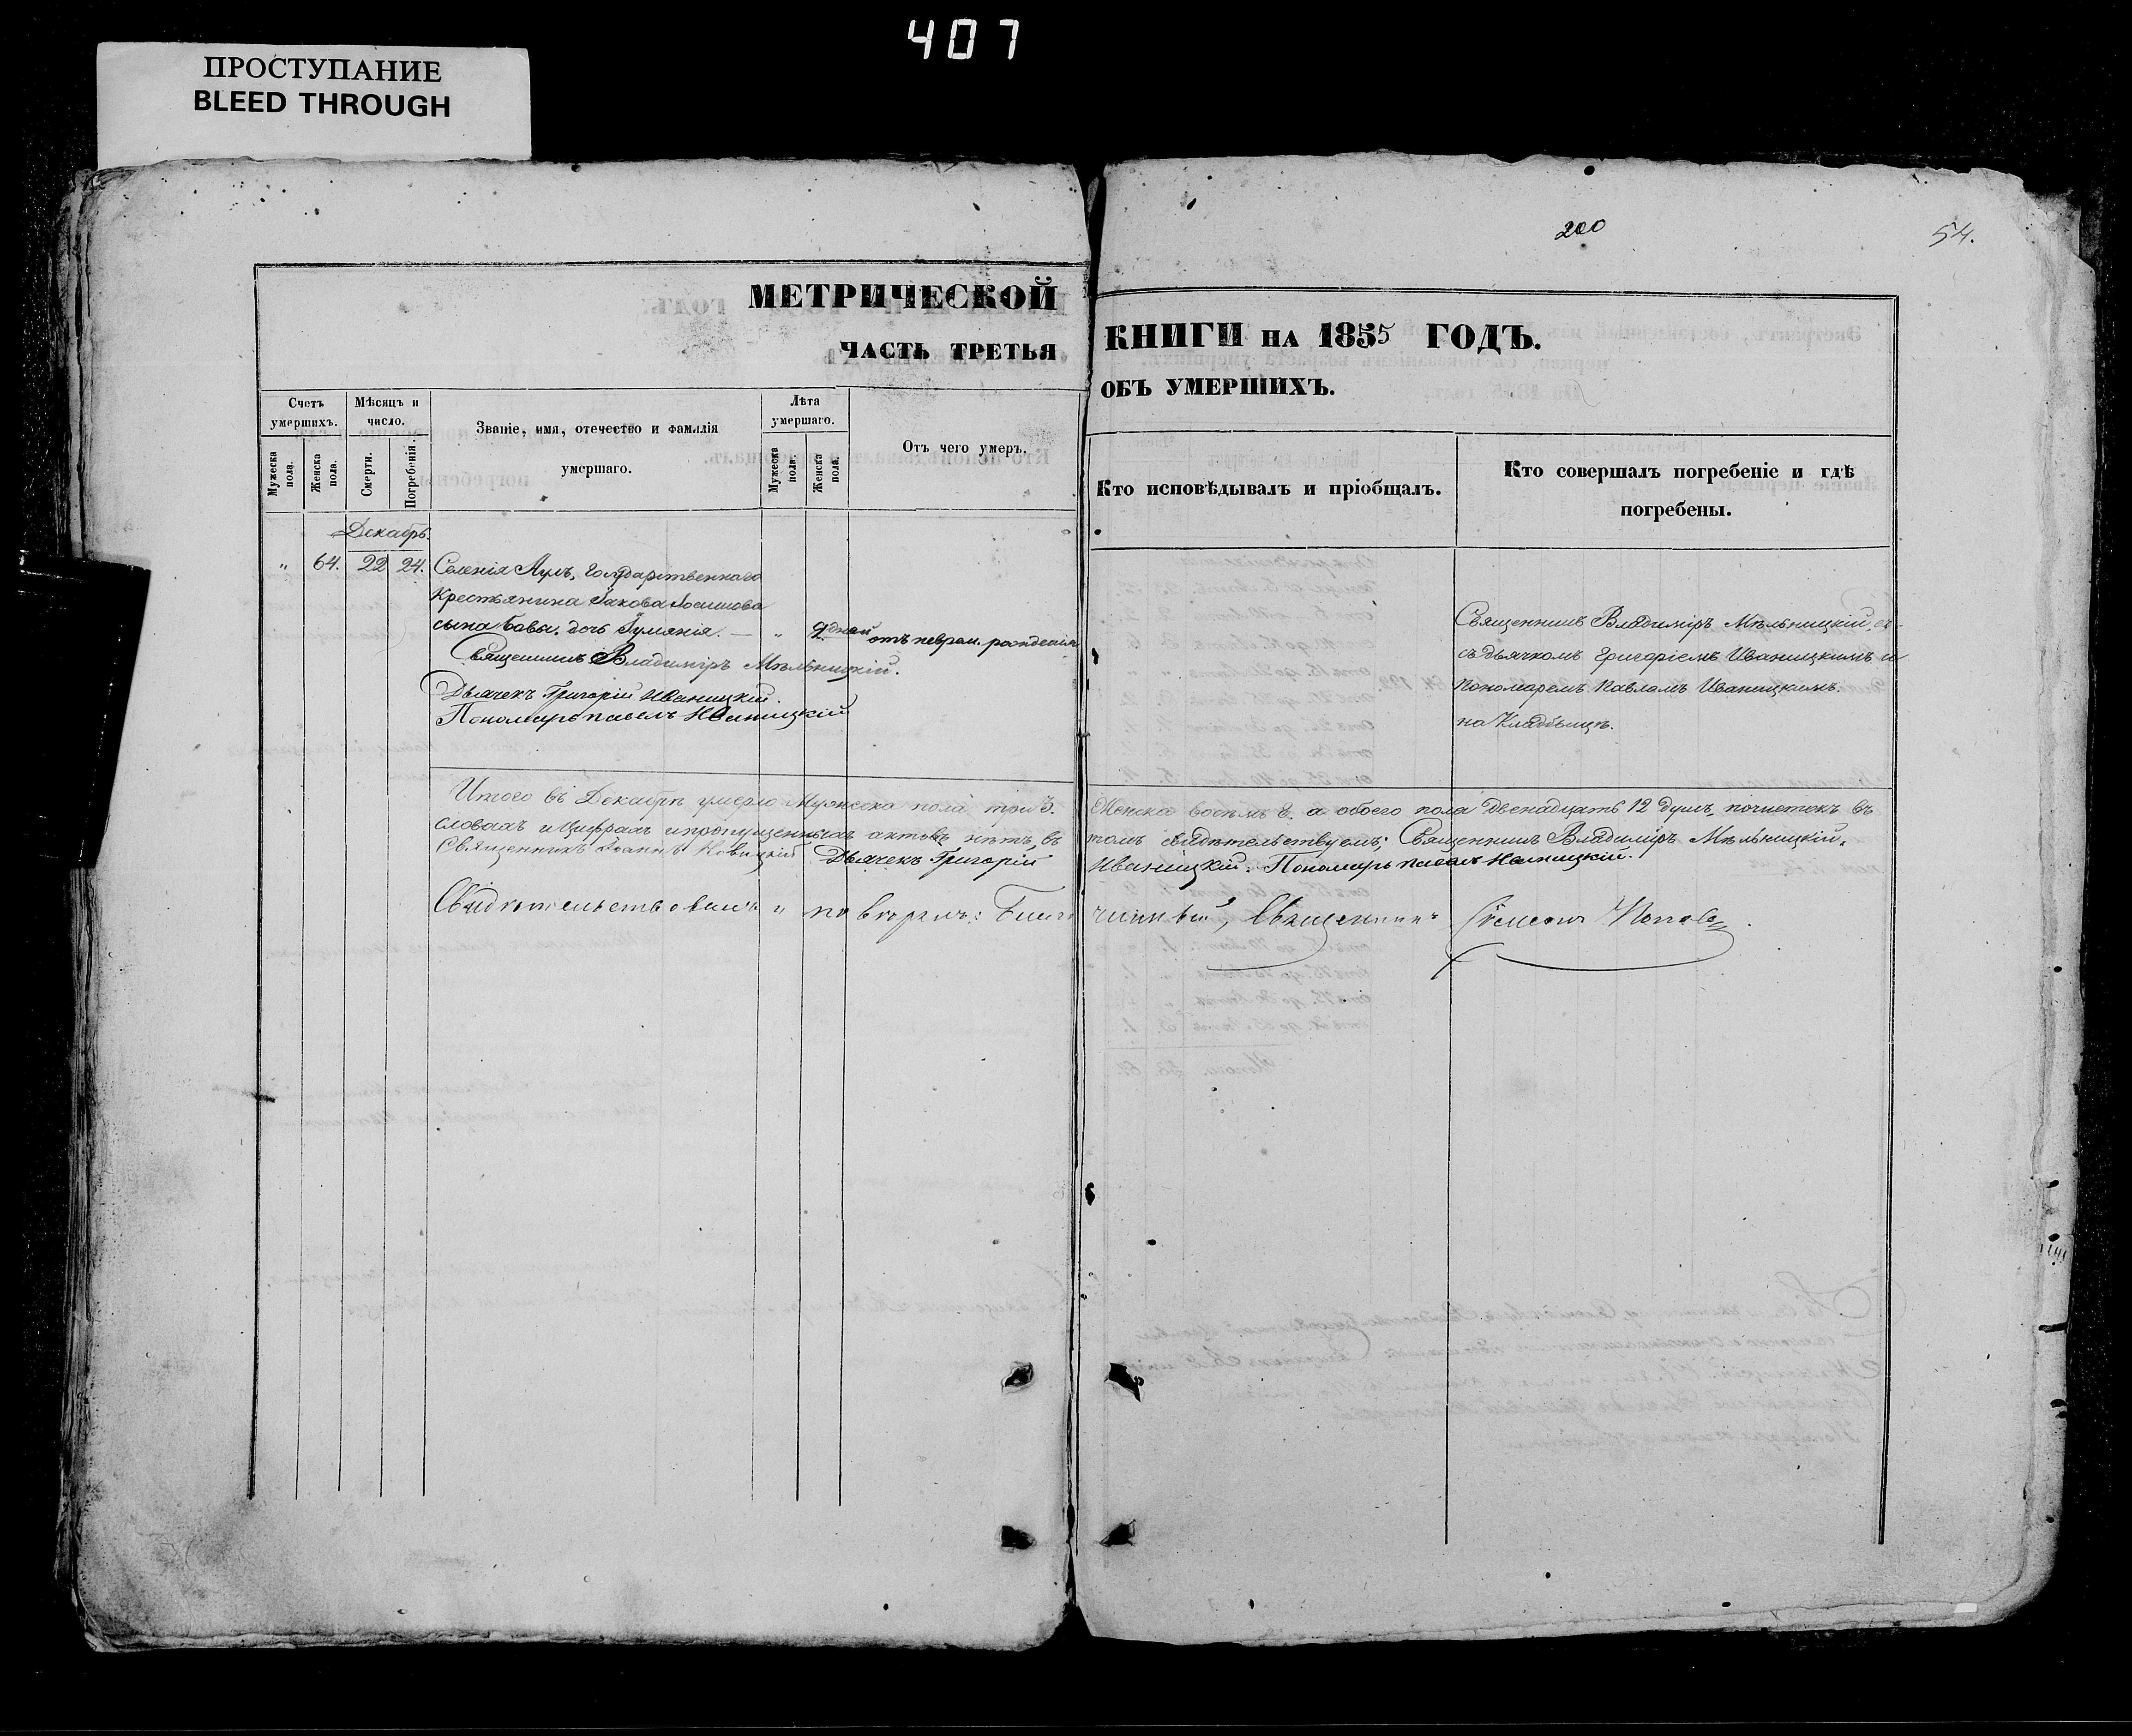 407
ПРОСТУПАНИЕ
BLEED THROUGH
200
54.
МЕТРИЧЕСКОЙ
ЧАСТЬ ТРЕТЬЯ
КНИГИ НА 1855 ГОДЪ.
ОБЪ УМЕРШИХЪ.
Счетъ умершихъ.
Мужеска пола.
Женска пола.
Мѣсяцъ и число.
Смерти.
Погребенія.
Званіе, имя, отечество и фамилія
умершаго.
Лѣта умершаго.
Мужеска пола.
Женска пола.
Отъ чего умеръ.
Кто исповѣдывалъ и пріобщалъ.
Кто совершалъ погребеніе и гдѣ
погребены.
Декабрь.
" 64. 22 24. Селенія Аулъ, Государственнаго
Крестьянина Іакова
сына дочь — " дней отъ рожденія
Священникъ Владиміръ Мѣльницкій.
Дьячекъ Григорій Иваницкій.
Пономарь Павелъ Иваницкій
Священникъ Владиміръ Мѣльницкій, съ
съ дьячкомъ Григоріемъ Иваницкимъ и
Пономаремъ Павломъ Иваницкимъ.
на Кладбищѣ.
Итого въ Декабрѣ умерло Мужеска пола три 3. Женска восемь 8. а обоего пола Двенадцать 12 душъ, почистокъ въ
словахъ и Цифрахъ и пропущенныхъ актовъ нѣтъ, въ томъ свидѣтельствуемъ; Священникъ Владиміръ Мѣльницкій.
Священникъ Іоаннъ Новицкій Дьячекъ Григорій Иваницкій. Пономарь Павелъ Иваницкій.
Свидѣтельствовалъ Священникъ Попов